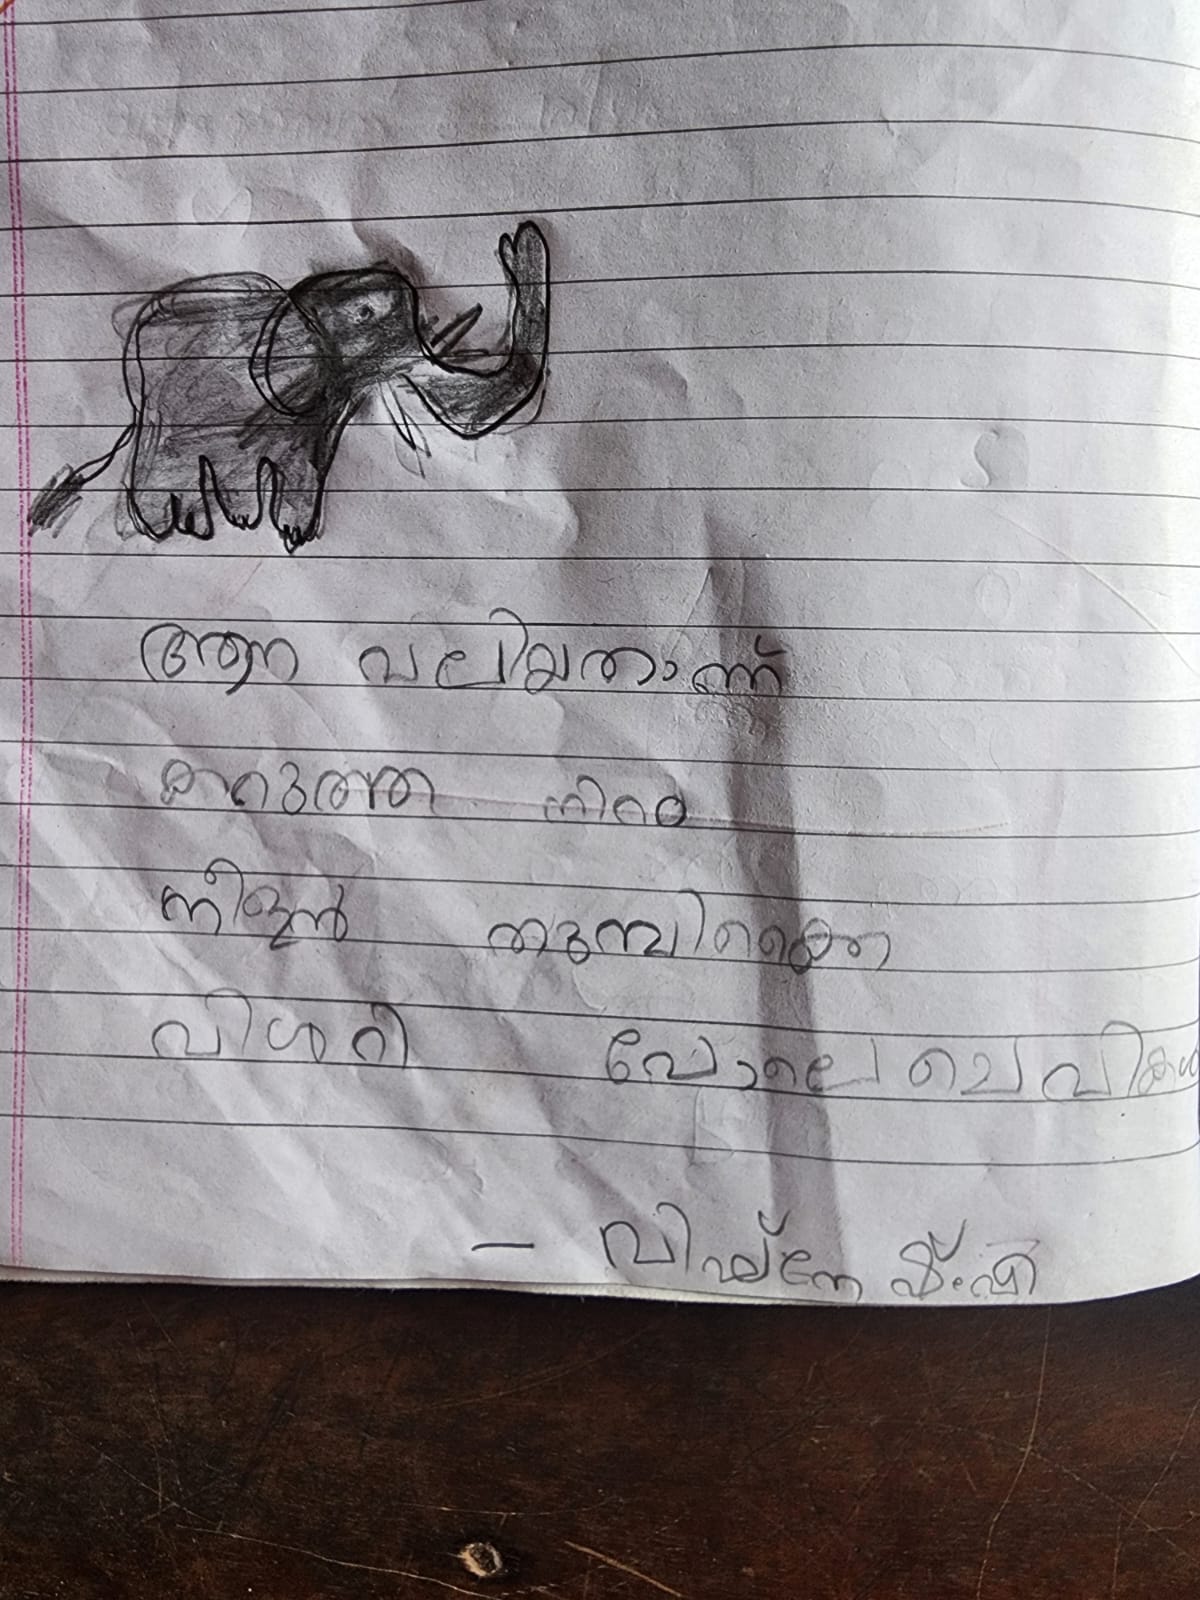 ആന വലിയതാണ്
കറുത്ത നിറം
നീളൻ തുമ്പിക്കൈ
വിശറി പോലെ ചെവികൾ